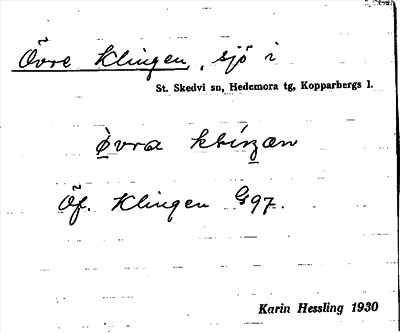 Övre Klingen, sjö i
St. Skedvi sn, Hedemora tg, Kopparbergs l.
øvra
Öf. Klingen G97.
Karin Hessling 1930